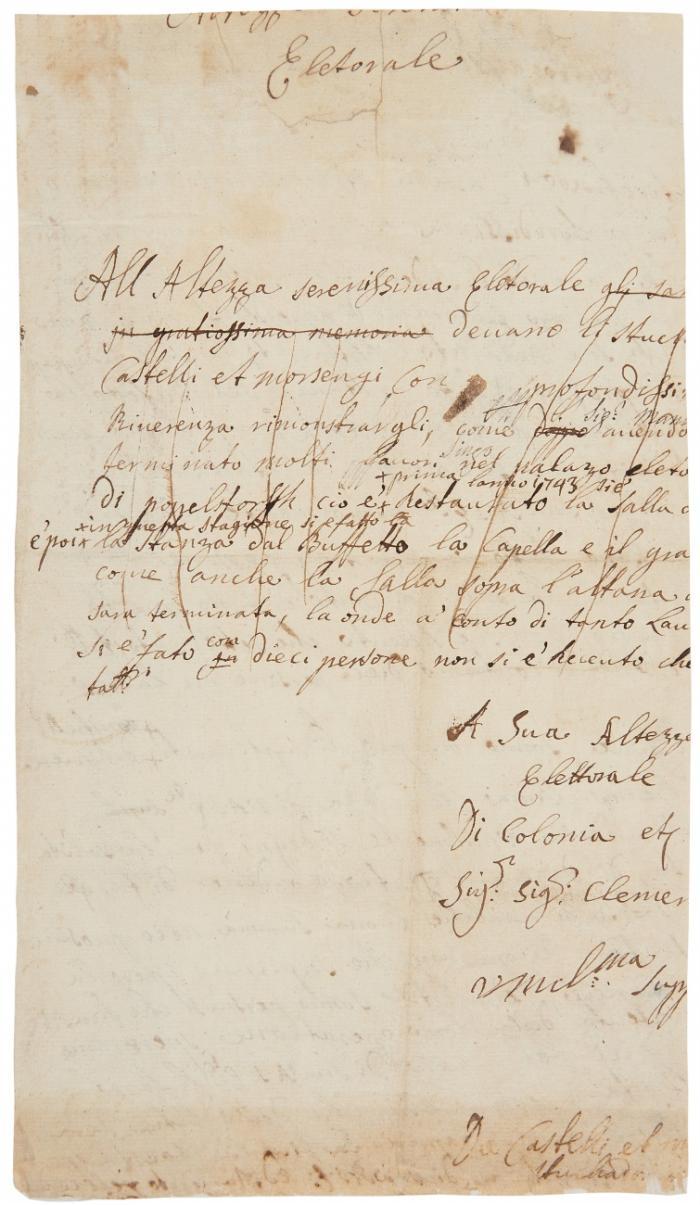 Eletorale
All Altezza serenissima Eletorale gli
in gratiossima memoria devano li stuc
Castelli et morsengi con profondissi
Riverenza rimonstrargli, come doppo avendo
terminato molti lavori nel palazo eleto
+ prima l'anno 1743 sie
Di popelstorff cio è + destaurato la salla
+ in questa stagione si è fatto la
è poi + la stanza dal Buffetto la Capella e il gra
come anche la salla sopra l'altana
sara terminata, la onde a' conto di tanto Lau
si e' fato con in dieci persone non si e' Receuto che
A Sua Altezz
Elettorale
Di Colonia et
Sig.r Sig.r Clemen
Sup
De Castelli et